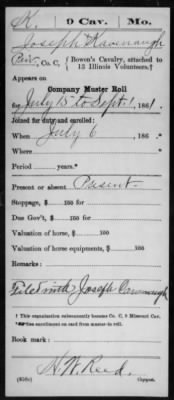 K. 9 Cav. Mo.
Joseph Kavenaugh
Priv., Co. C, { Bowen's Cavalry, attached to 13 Illinois Volunteers.† }
Appears on
Company Muster Roll
for July 15 to Sept 1, 1861.
Joined for duty and enrolled:
When July 6, 186 .*
Where
Period years.*
Present or absent Present
Stoppage, $ 100 for
Due Gov't, $ 100 for
Valuation of horse, $ 100
Valuation of horse equipments, $ 100
Remarks:
Filed with Joseph Cavanaugh
† This organization subsequently became Co. C, 9 Missouri Cav.
*See enrollment on card from muster-in roll.
Book mark:
H. W. Reed.
Copyist.